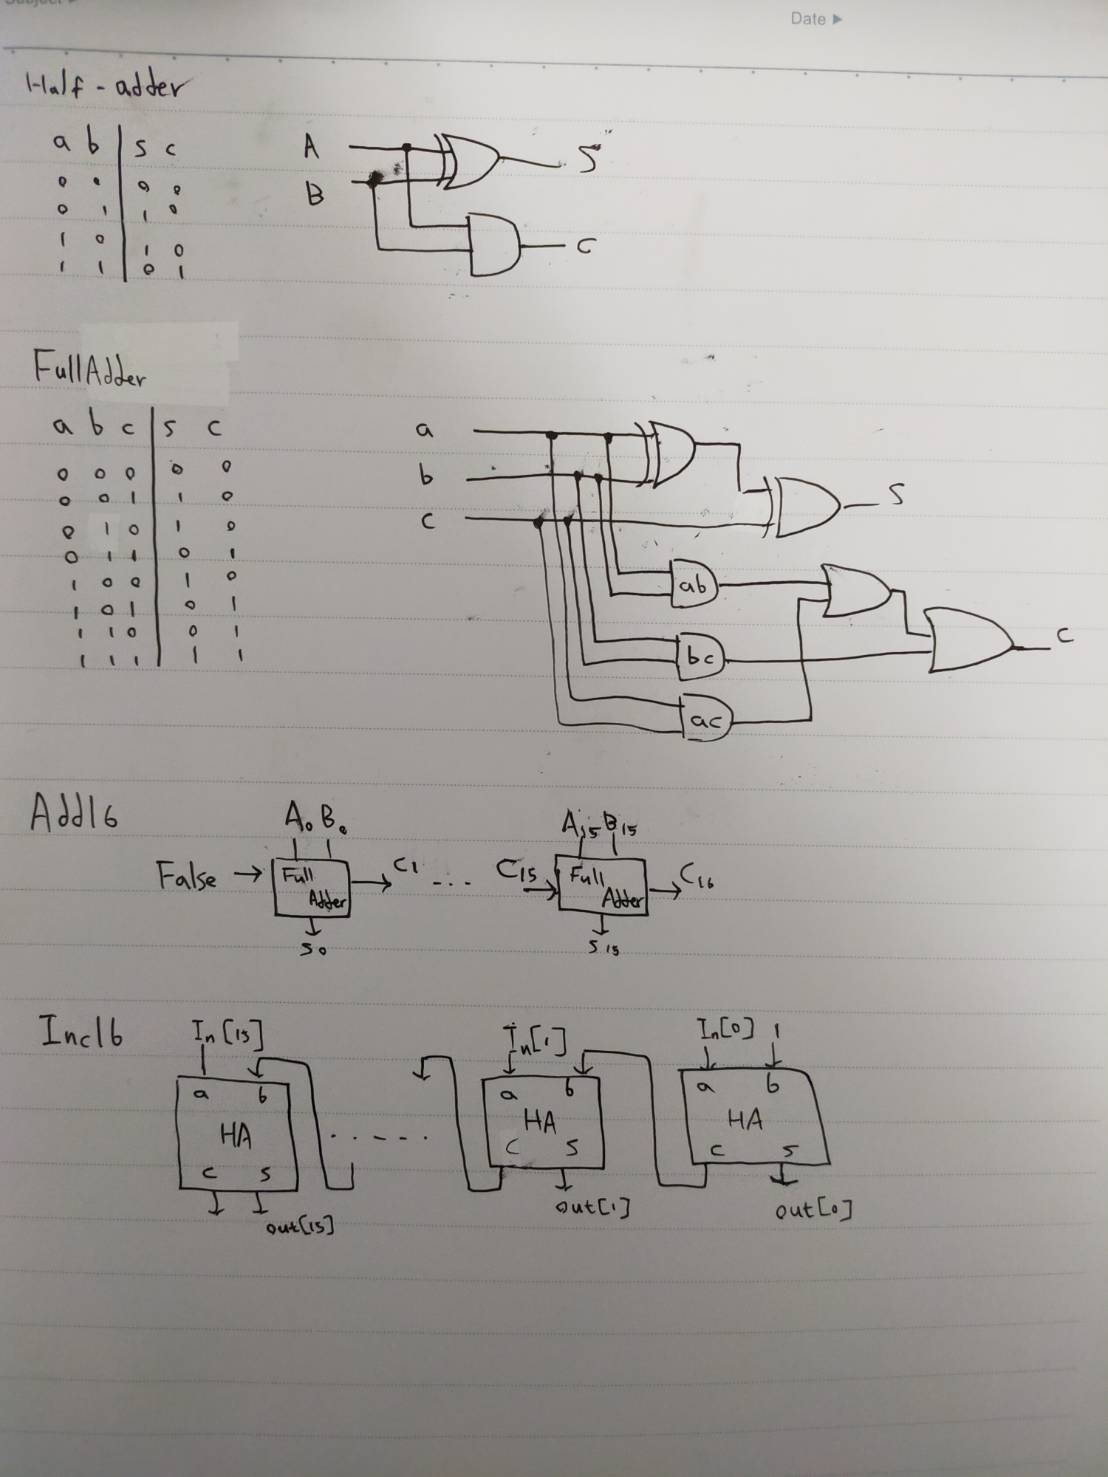 Date ▶
Half-adder
a b | s c
0 0 | 0 0
0 1 | 1 0
1 0 | 1 0
1 1 | 0 1
A
B
S
C
FullAdder
a b c | s c
0 0 0 | 0 0
0 0 1 | 1 0
0 1 0 | 1 0
0 1 1 | 0 1
1 0 0 | 1 0
1 0 1 | 0 1
1 1 0 | 0 1
1 1 1 | 1 1
a
b
c
S
ab
bc
ac
C
Add16
A₀ B₀
False → Full Adder → C₁ ... C₁₅ → Full Adder → C₁₆
A₁₅ B₁₅
S₀
S₁₅
Inc16
In[15]
In[1]
In[0] 1
a b
HA
c s
out[15]
.....
a b
HA
c s
out[1]
a b
HA
c s
out[0]